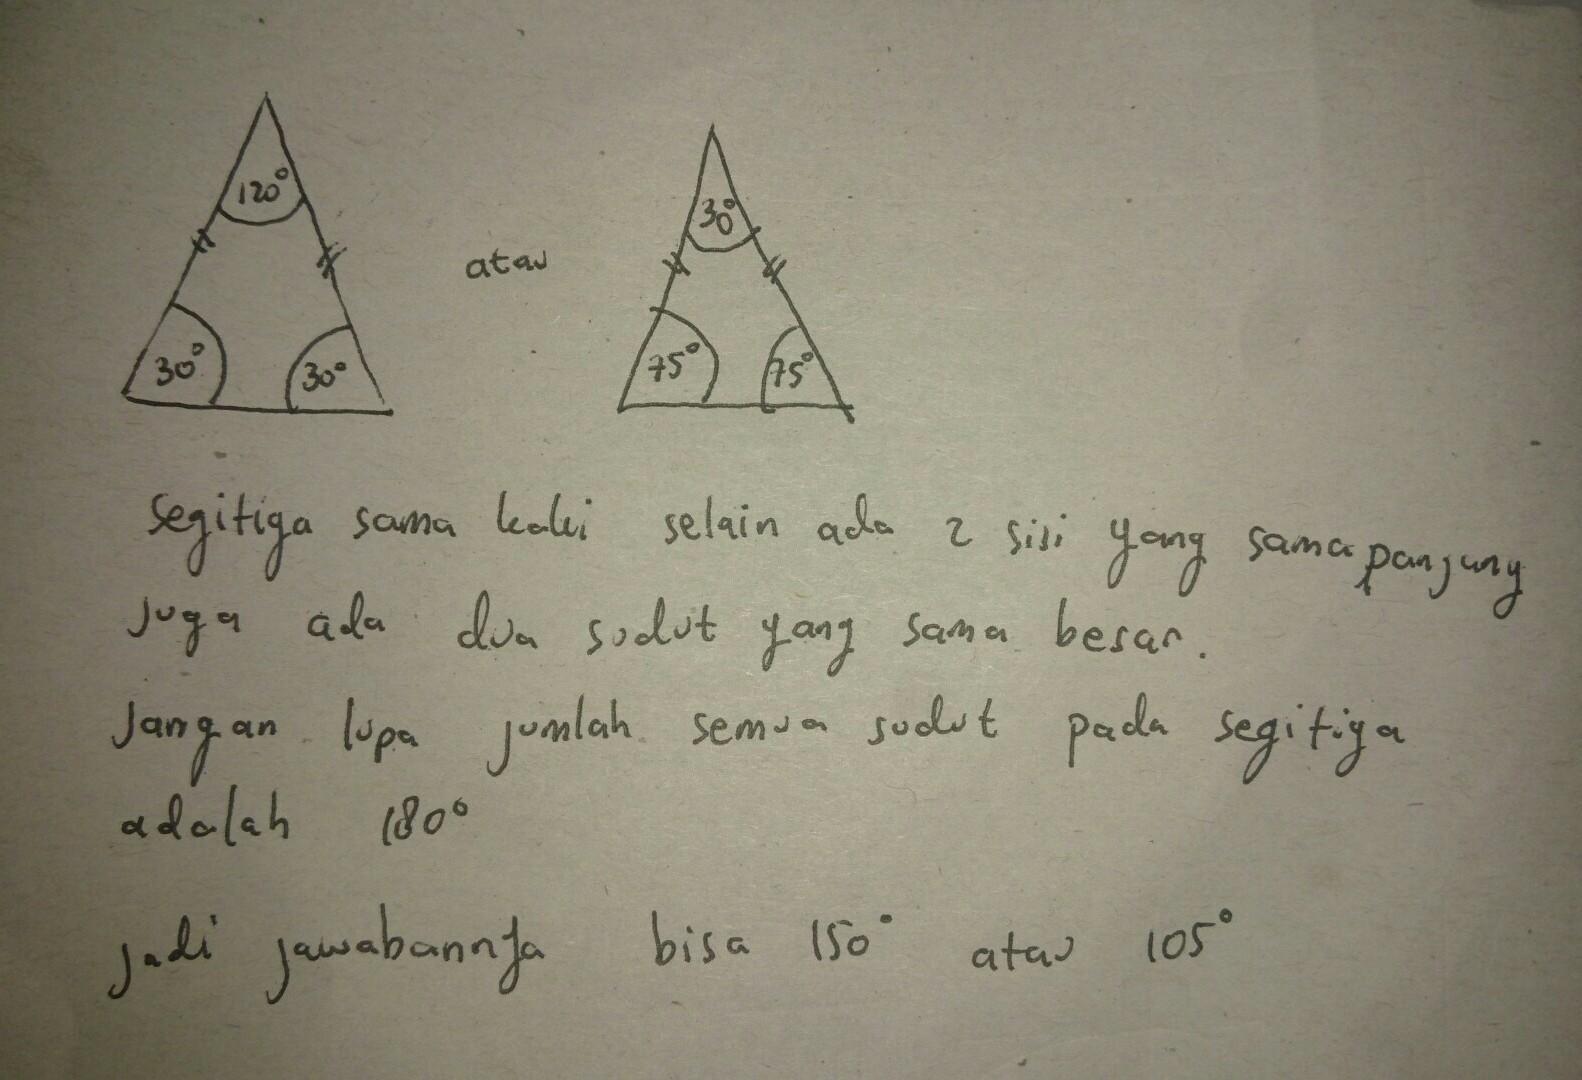 120°
30° 30°
atau
30°
75° 75°
Segitiga sama kaki selain ada 2 sisi yang sama panjang
Juga ada dua sudut yang sama besar.
Jangan lupa jumlah semua sudut pada segitiga
adalah 180°
jadi jawabannya bisa 150° atau 105°